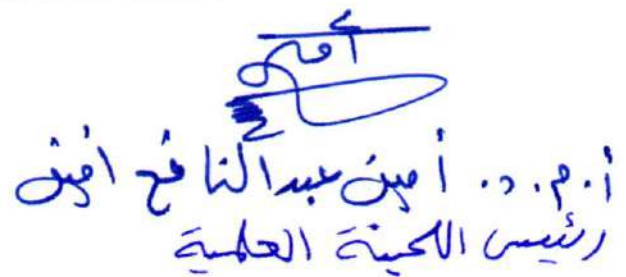 أ.م.د. أمين عبد النافع أمين
رئيس اللجنة العلمية